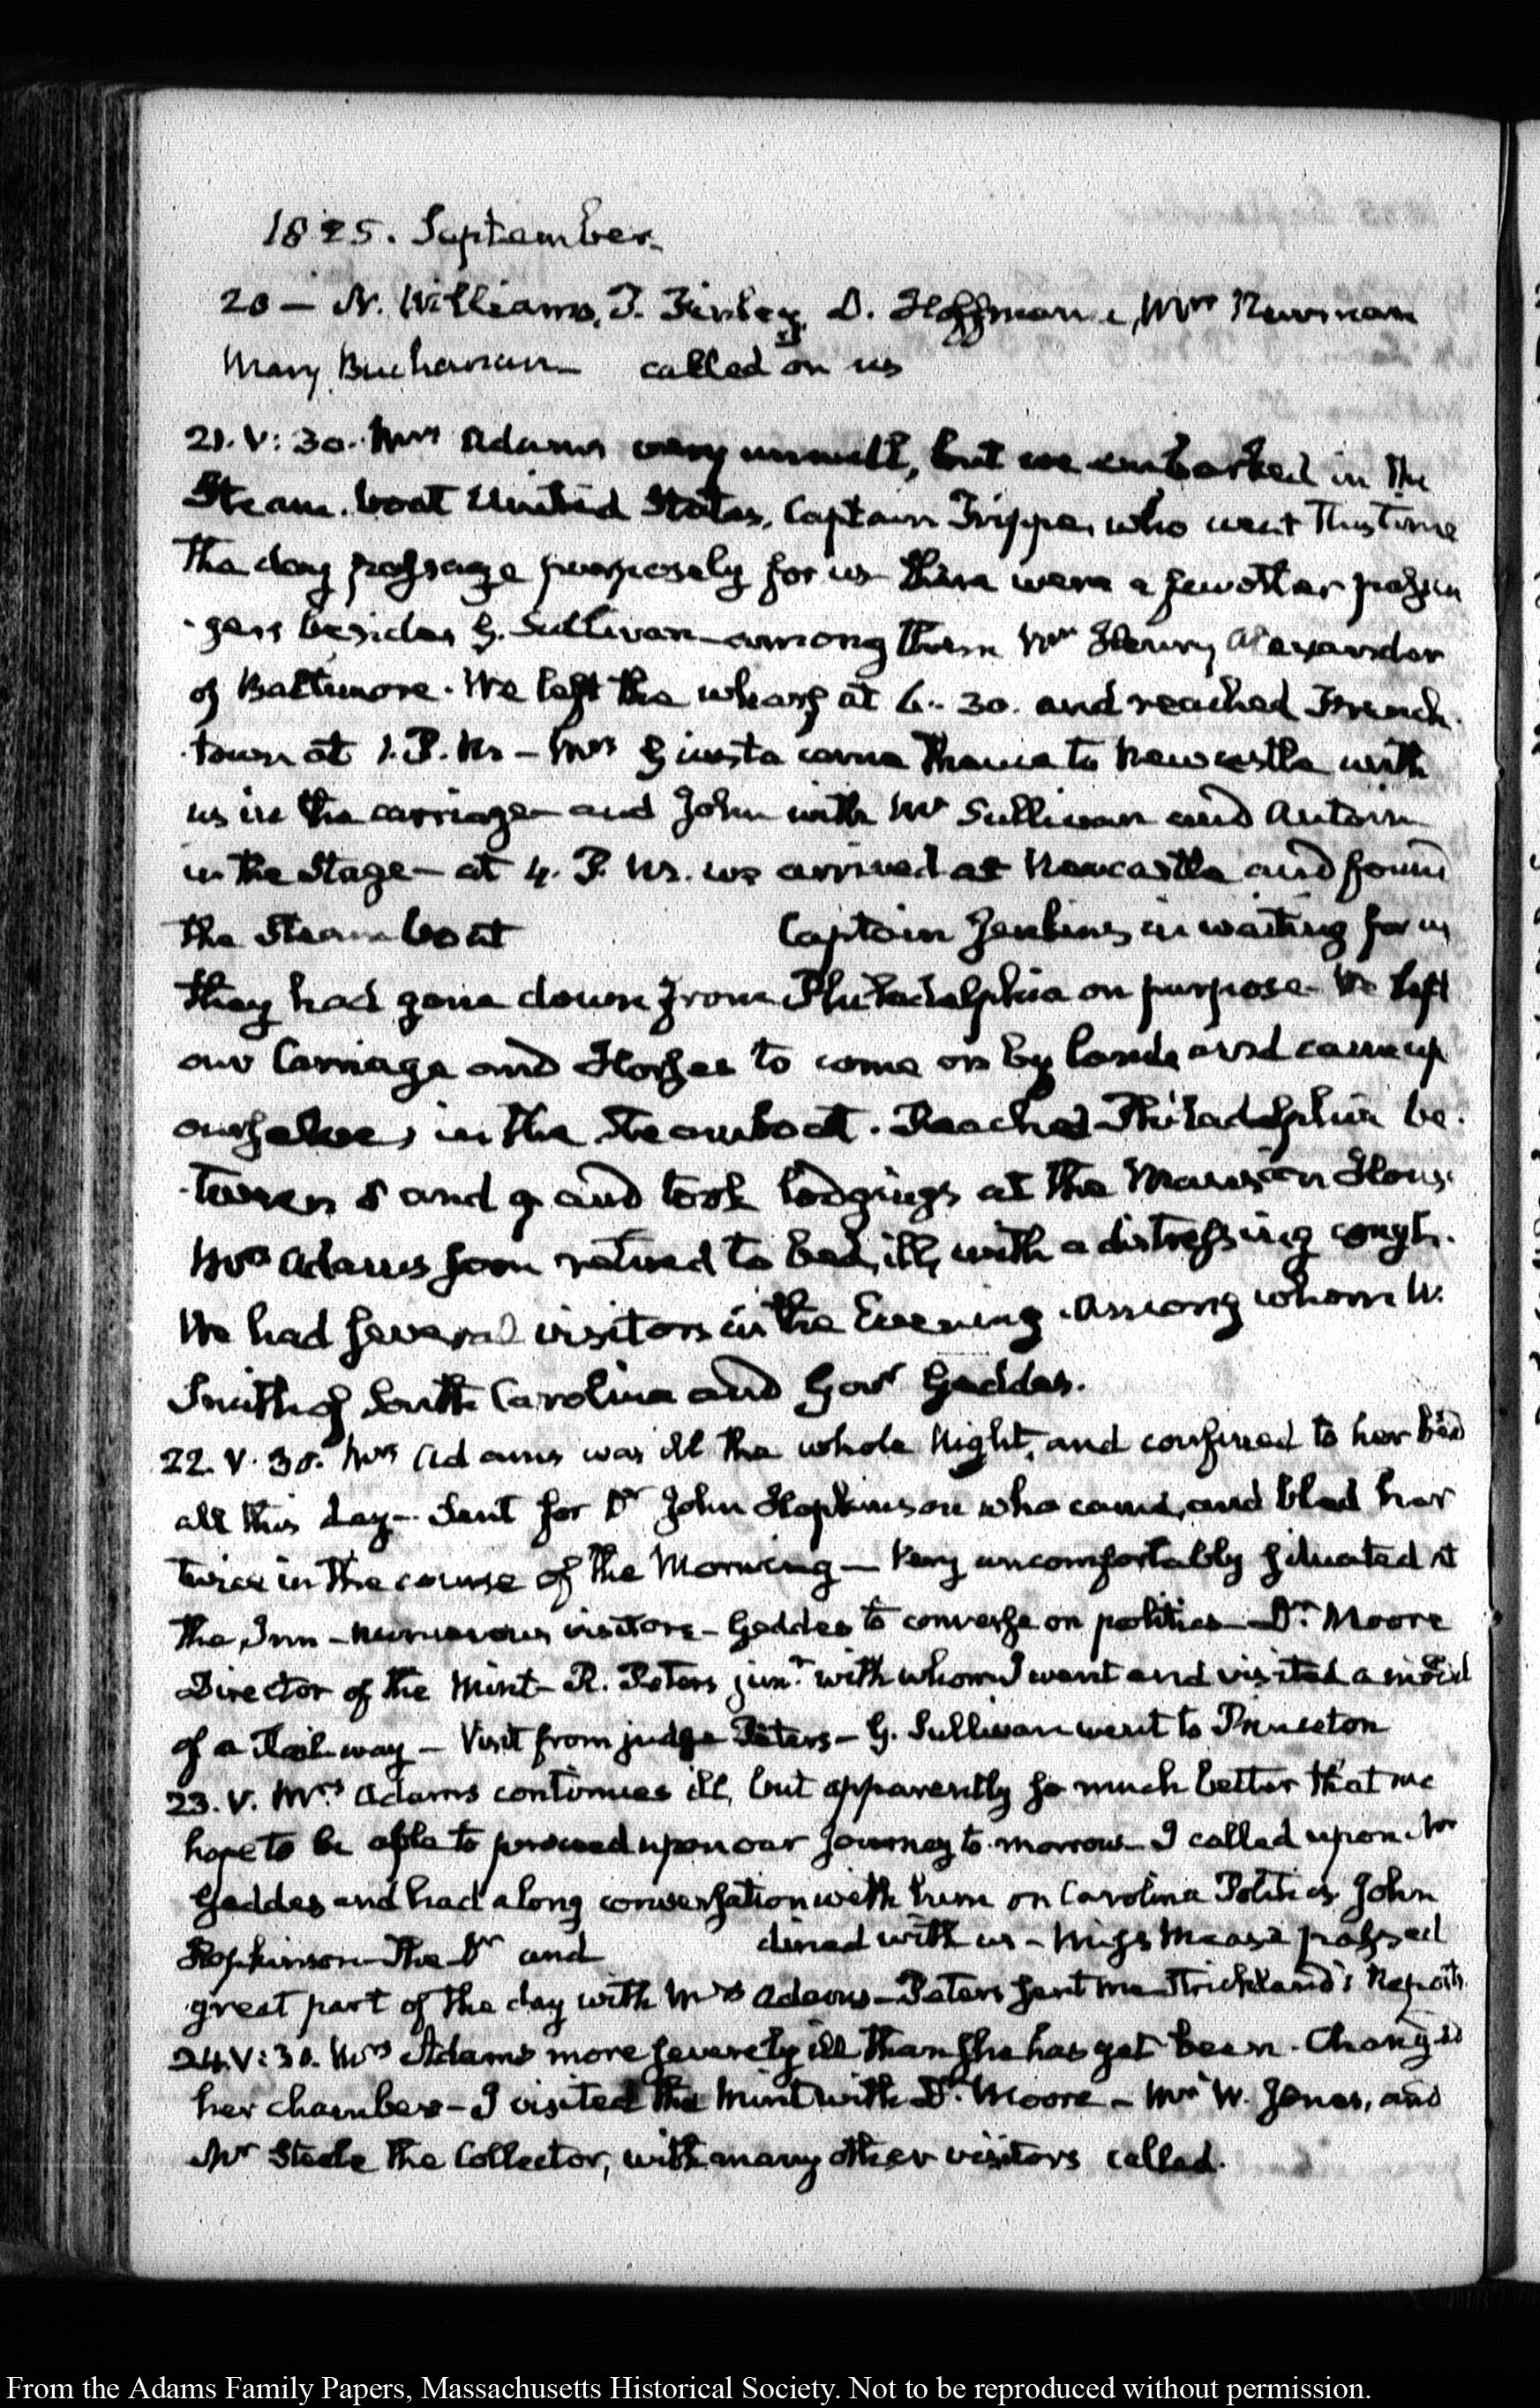 1825. September.
20 — N. Williams, T. Finley, D. Hoffman, Mrs Newman
Mary Buchanan — called on us
21. V:30. Mrs Adams very unwell, but we embarked in the
Steam-boat United States, Captain Trippe, who went this time
the day passage purposely for us there were a few other passen
-gers besides G. Sullivan — among them Wm Henry Alexander
of Baltimore. We left the wharf at 6.30. and reached French-
-town at 1. P.M. — Mrs Giusta came thence to Newcastle with
us in the carriage — and John with Mr Sullivan and Antoine
in the Stage — at 4. P.M. we arrived at Newcastle and found
the Steam boat Captain Jenkins in waiting for us
they had gone down from Philadelphia on purpose — We left
our Carriage and Horses to come on by land and came up
ourselves in the Steamboat. Reached Philadelphia be-
-tween 8 and 9 and took lodgings at the Mansion House
Mrs Adams soon retired to bed, ill, with a distressing cough.
We had several visitors in the Evening. Among whom W.
Smith of South Carolina and Govr Geddes.
22. V.30. Mrs Adams was ill the whole Night, and confined to her bed
all this day — Sent for Dr John Hopkinson who came, and bled her
twice in the course of the Morning — Very uncomfortably situated at
the Inn — numerous visitors — Geddes to converse on politics — Dr. Moore
Director of the Mint — R. Peters junr. with whom I went and visited a model
of a Rail-way — Visit from judge Peters — G. Sullivan went to Princeton
23. V. Mrs Adams continues ill, but apparently so much better that we
hope to be able to proceed upon our journey to-morrow — I called upon Mr
Geddes and had a long conversation with him on Carolina Politics. John
Hopkinson — The Dr and dined with us — Miss Mease passed
great part of the day with Mrs Adams — Peters sent me Strickland's Reports
24. V:30. Mrs Adams more severely ill than she has yet been. Changed
her chamber — I visited the Mint with Dr. Moore — Mr W. Jones, and
Mr Steele the Collector, with many other visitors called.
From the Adams Family Papers, Massachusetts Historical Society. Not to be reproduced without permission.